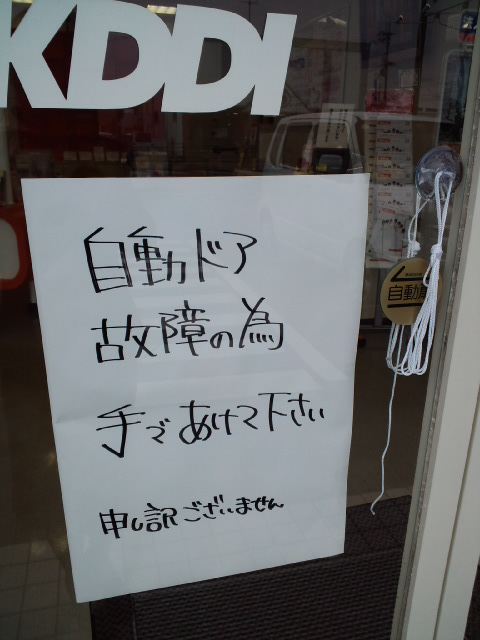 KDDI
自動ドア
故障の為
手であけて下さい
申し訳ございません
自動